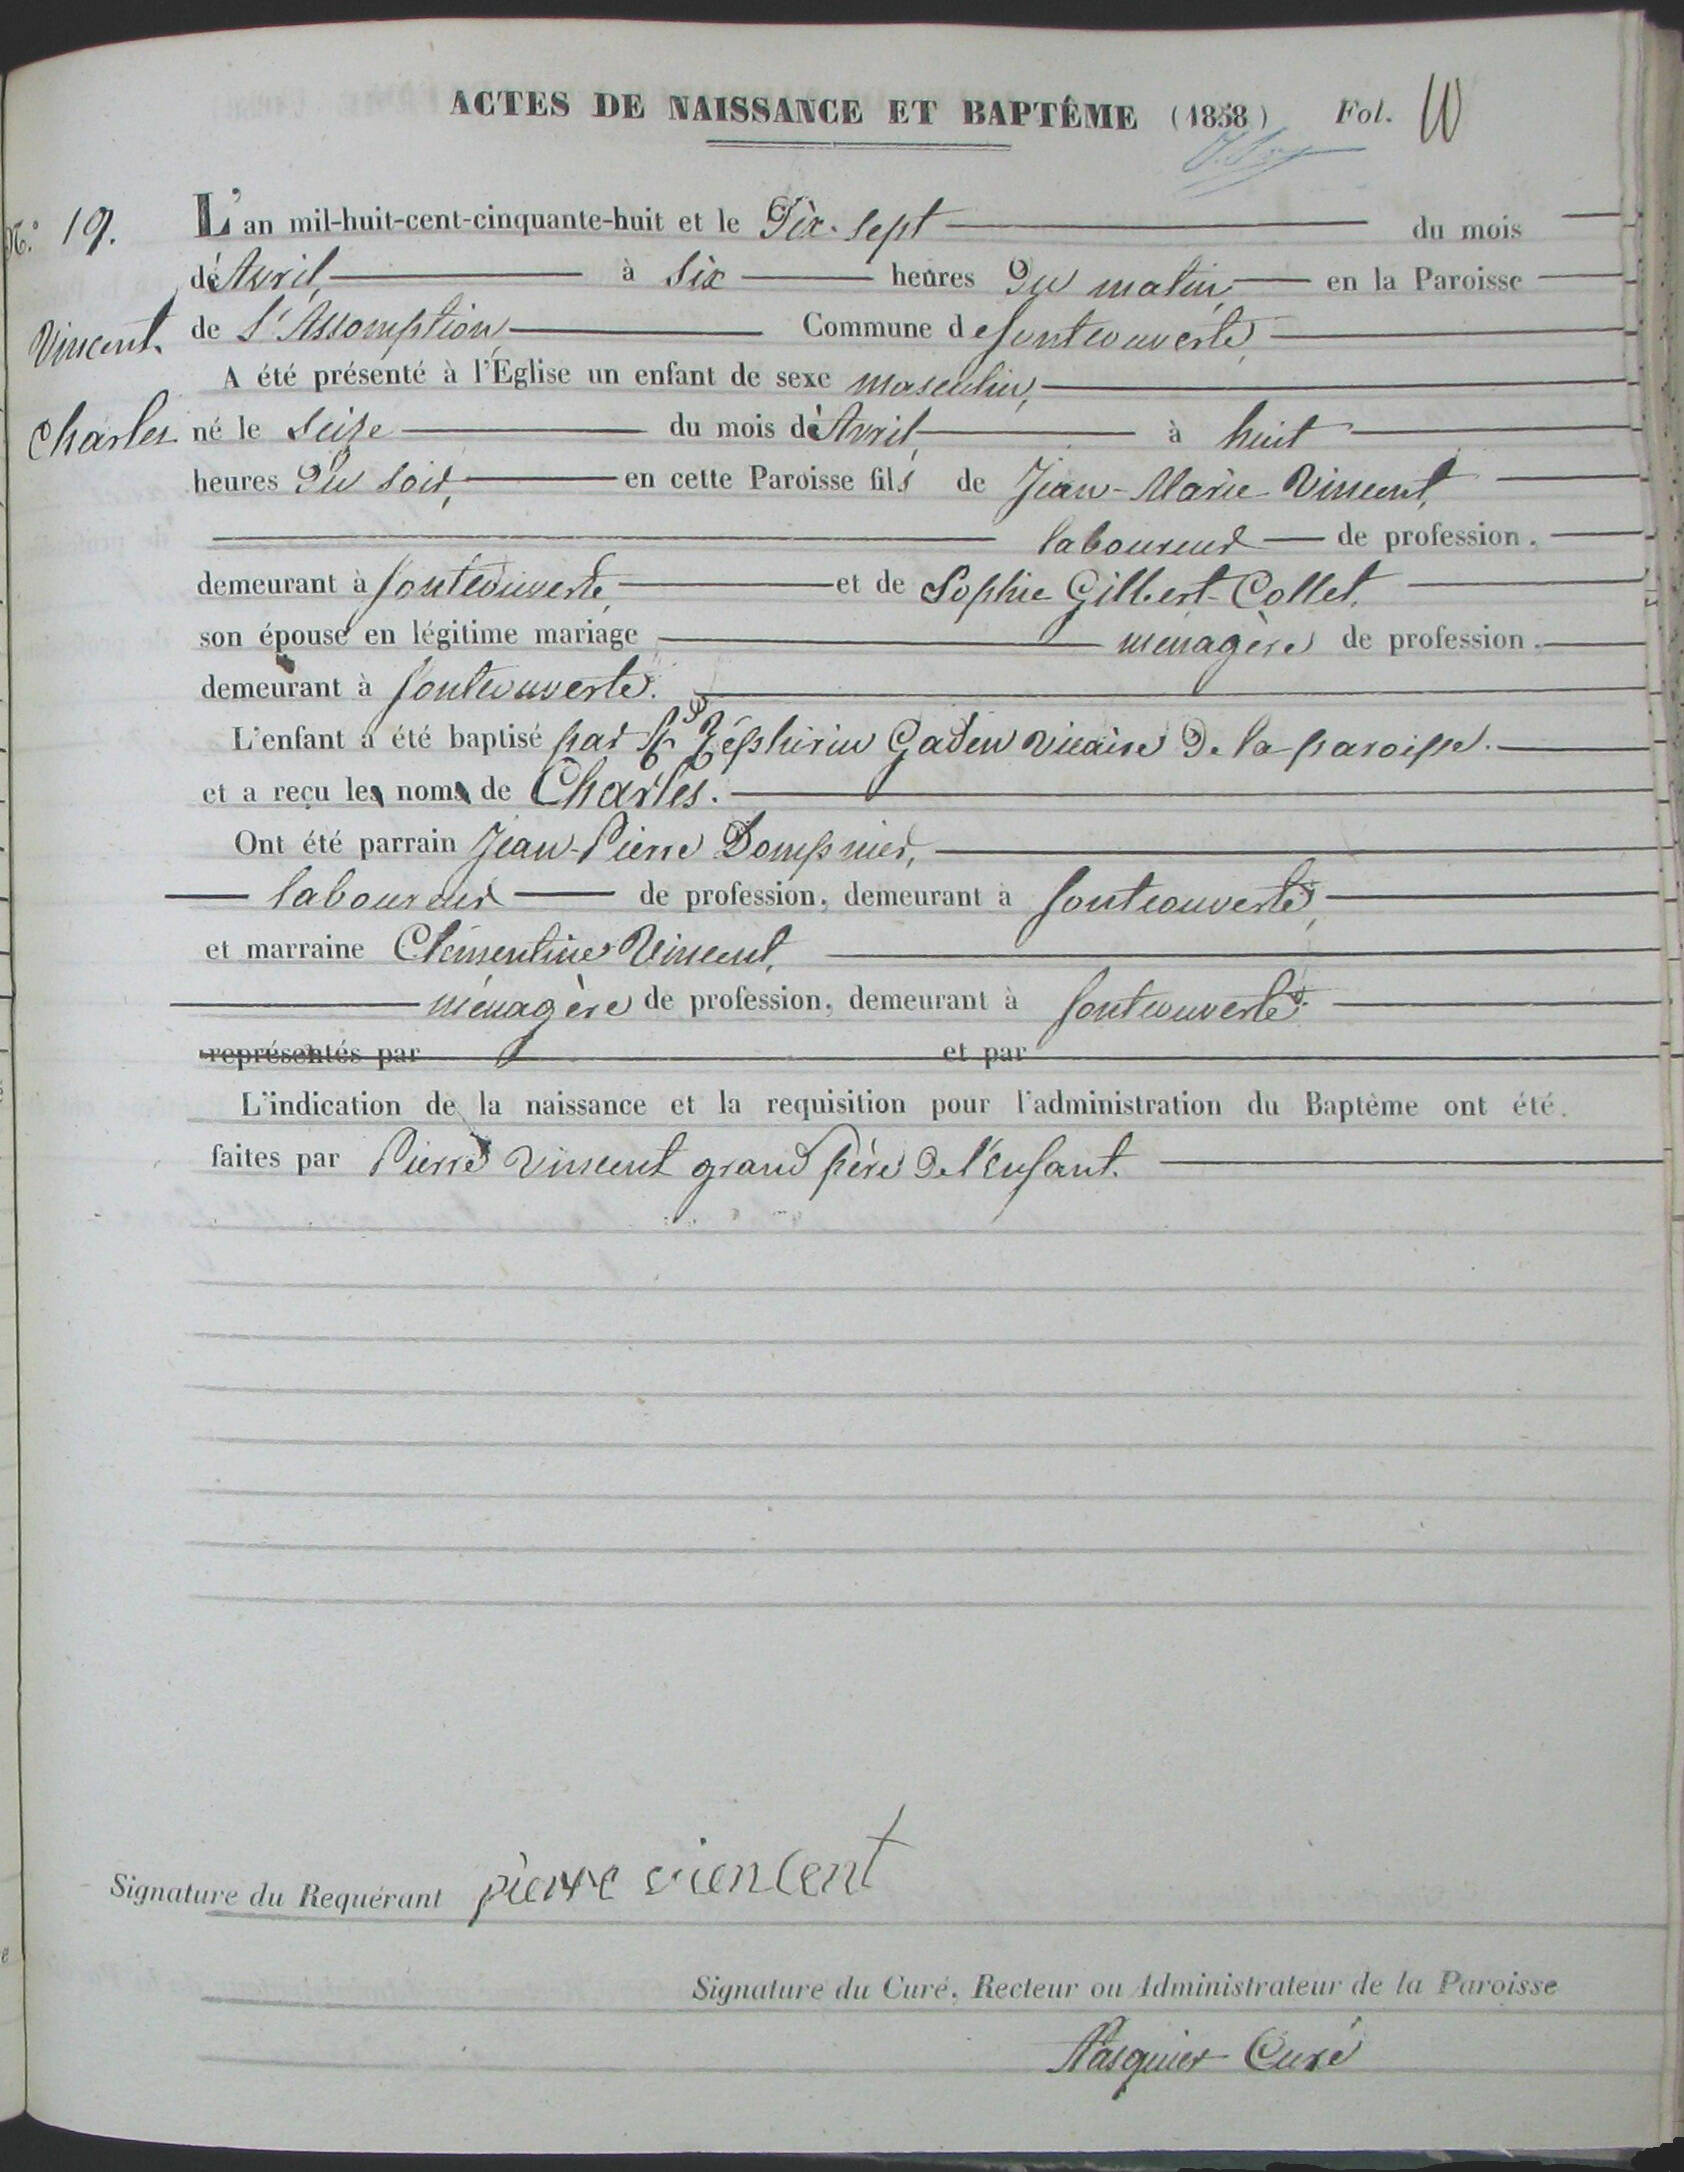 ACTES DE NAISSANCE ET BAPTÊME (1858) Fol. 10
N.° 19.
Vincent
Charles
L'an mil-huit-cent-cinquante-huit et le Dix-sept du mois
d'Avril, à Six heures du matin, en la Paroisse
de l'Assomption, Commune de fontcouverte,
A été présenté à l'Église un enfant de sexe masculin,
né le Seize du mois d'Avril, à huit
heures du soir, en cette Paroisse fils de Jean-Marie Vincent,
laboureur de profession.
demeurant à fontcouverte, et de Sophie Gilbert-Collet,
son épouse en légitime mariage ménagère de profession.
demeurant à fontcouverte.
L'enfant a été baptisé par Rd Zéphirin Gaden vicaire de la paroisse.
et a reçu le nom de Charles.
Ont été parrain Jean-Pierre Dompnier,
laboureur de profession, demeurant à fontcouverte,
et marraine Clémentine Vincent,
ménagère de profession, demeurant à fontcouverte.
représentés par et par
L'indication de la naissance et la requisition pour l'administration du Baptême ont été
faites par Pierre Vincent grand père de l'enfant.
Signature du Requérant pierre viencent
Signature du Curé, Recteur ou Administrateur de la Paroisse
Pasquier Curé